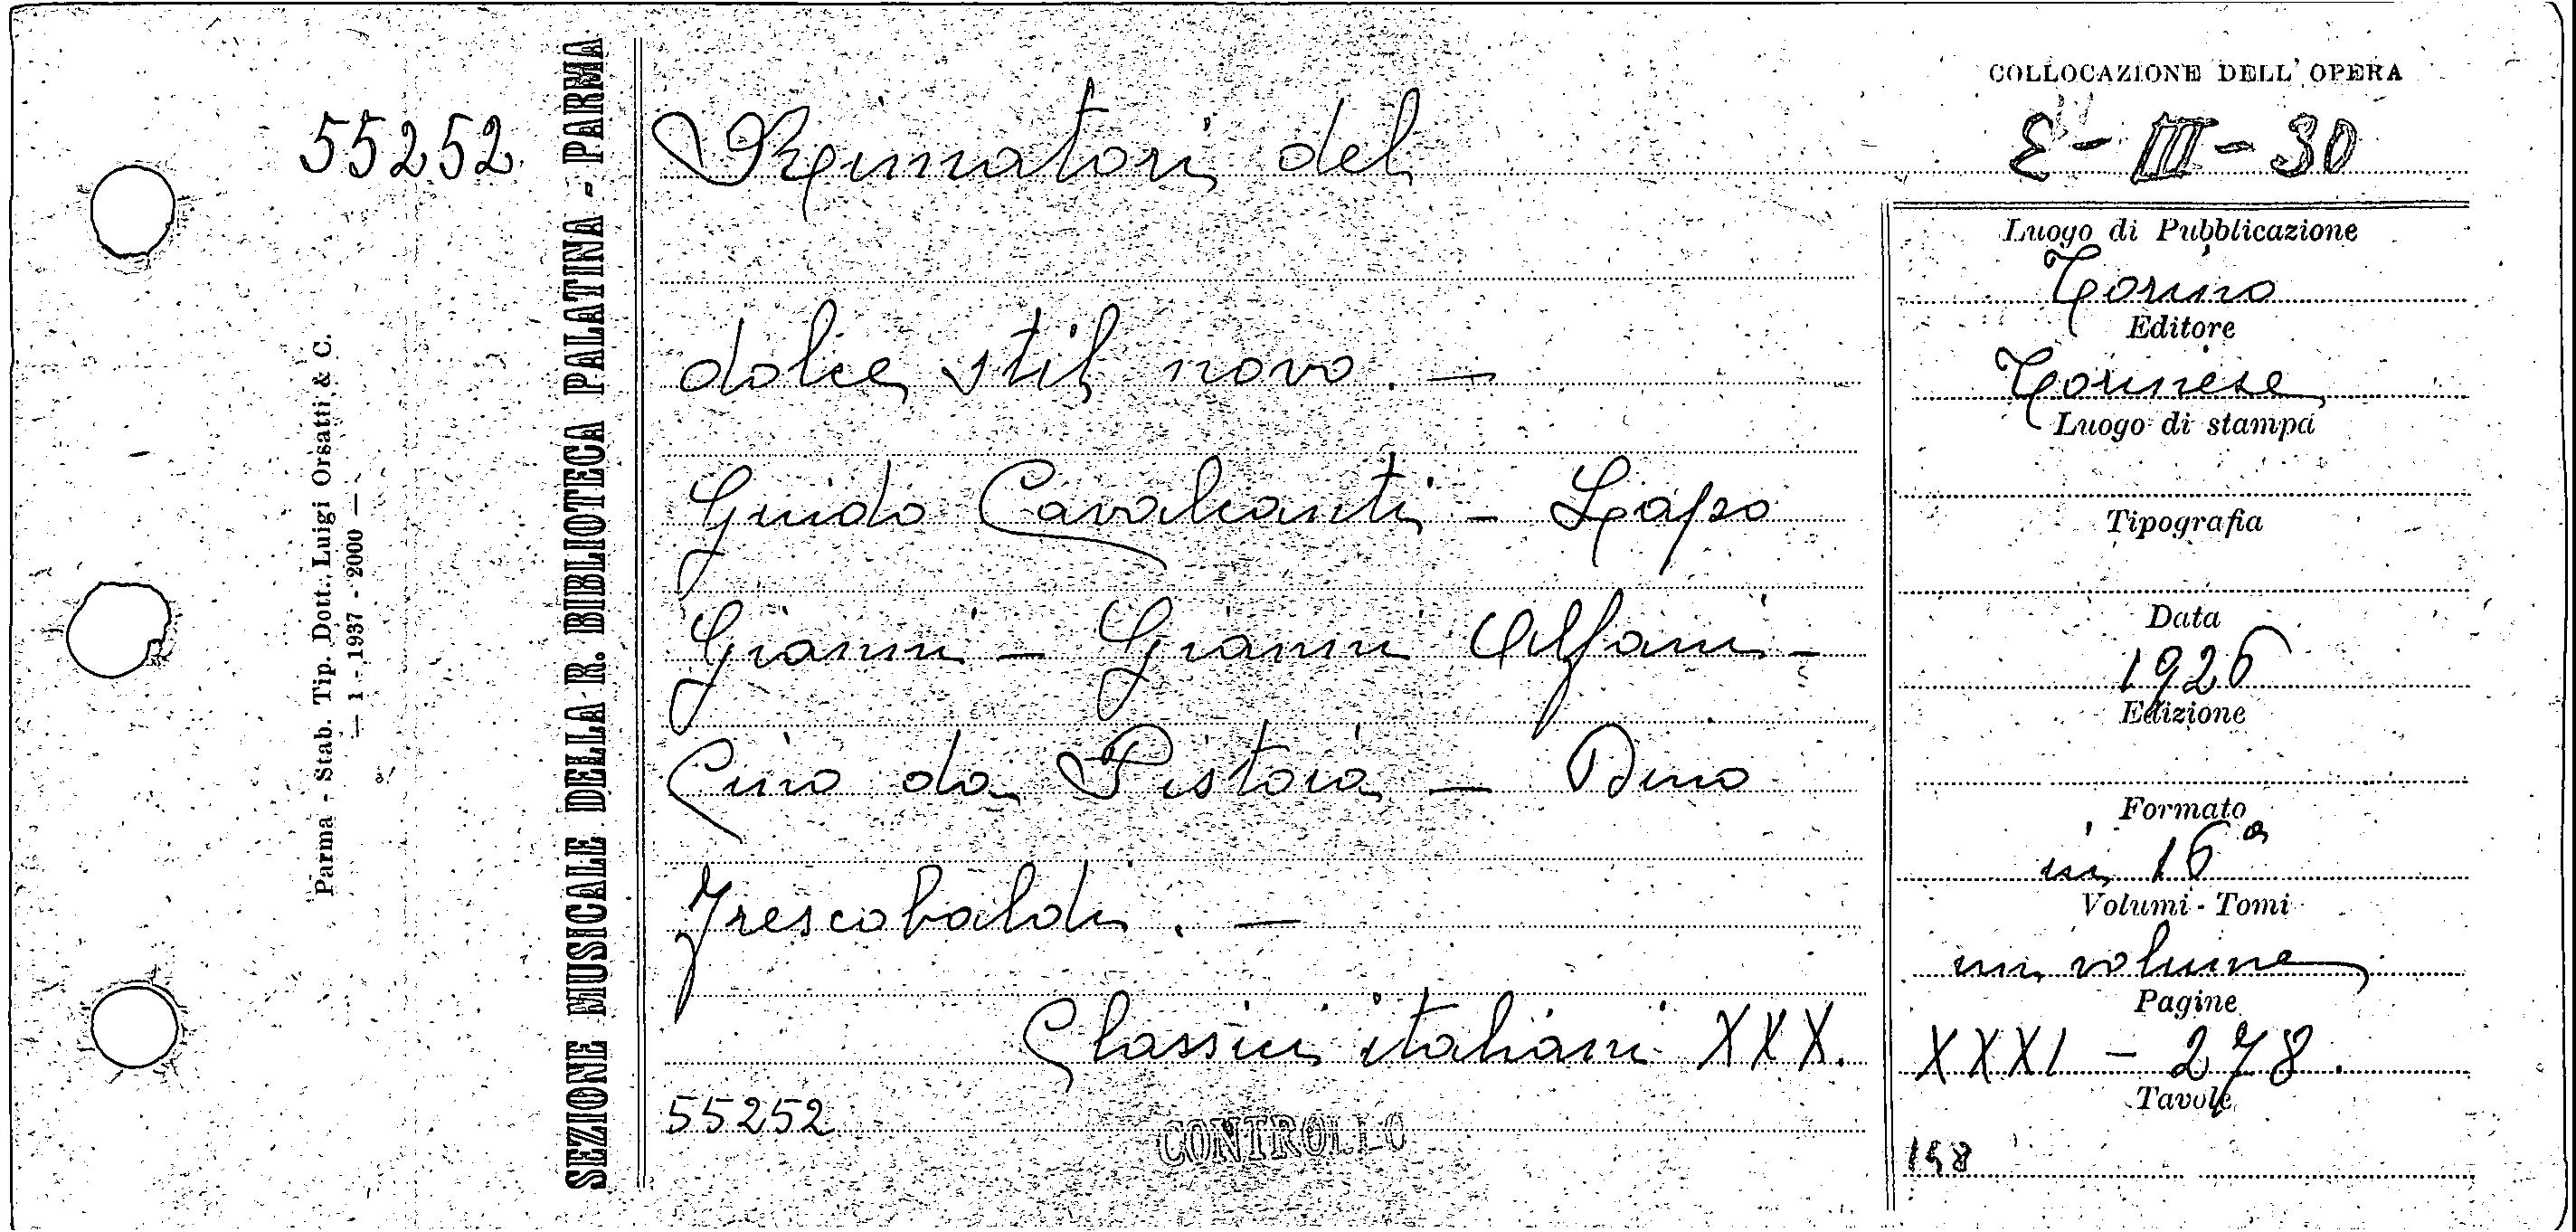 55252
Parma - Stab. Tip. Dott. Luigi Orsatti & C.
— 1 - 1937 - 2000 —
SEZIONE MUSICALE DELLA R. BIBLIOTECA PALATINA - PARMA
Rimatori del
dolce stil novo. —
Guido Cavalcanti - Lapo
Gianni - Gianni Alfani -
Cino da Pistoia - Dino
Frescobaldi. —
Classici italiani XXX.
55252
CONTROLLO
COLLOCAZIONE DELL' OPERA
E - III - 30
Luogo di Pubblicazione
Torino
Editore
Torinese
Luogo di stampa
Tipografia
Data
1926
Edizione
Formato
in 16°
Volumi - Tomi
un volume
Pagine
XXXI - 278.
Tavole